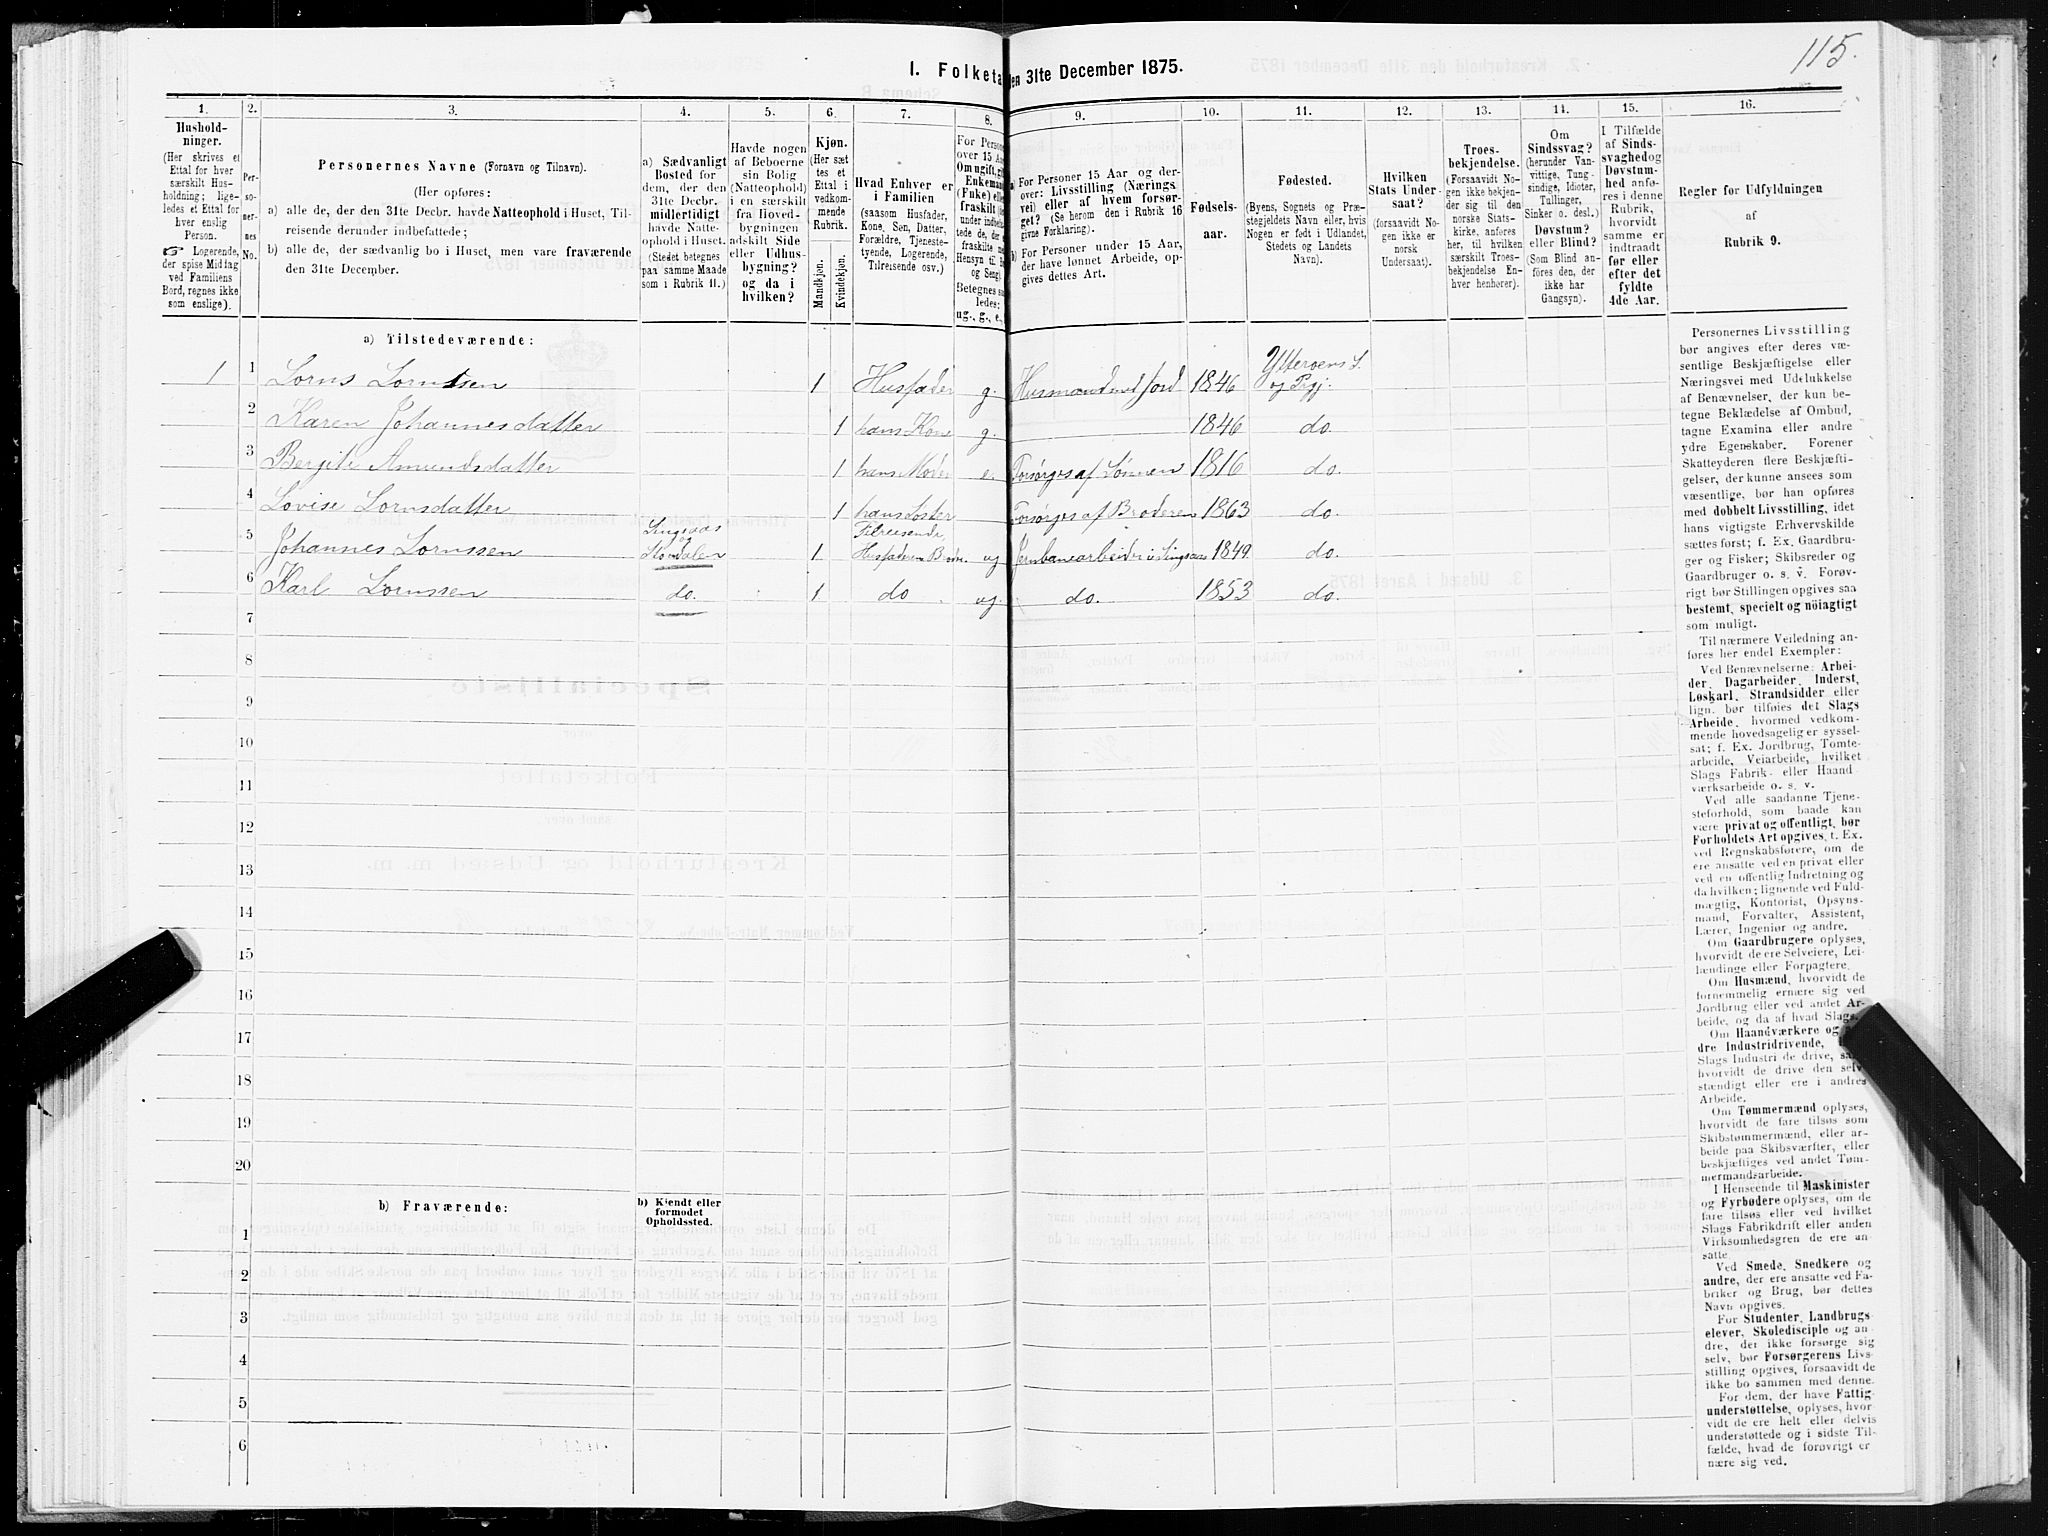 115.
I. Folketa
en 31te December 1875.
1.
2.
3.
4.
5.
6.
7.
8.
9.
10.
11.
12.
13.
14.
15.
16.
Hushold-
ninger.
(Her skrives et
Ettal for hver
særskilt Hus-
holdning; lige-
ledes et Ettal for
hver enslig
Person.
☞ Logerende,
der spise Middag
ved Familiens
Bord, regnes ikke
som enslige).
Per-
so-
ner-
nes
No.
Personernes Navne (Fornavn og Tilnavn).
(Her opføres:
a) alle de, der den 31te Decbr. havde Natteophold i Huset, Til-
reisende derunder indbefattede;
b) alle de, der sædvanlig bo i Huset, men vare fraværende
den 31te December.
a) Sædvanligt
Bosted for
dem, der den
31te Decbr.
midlertidigt
havde Natte-
ophold i Huset.
(Stedet betegnes
paa samme Maade
som i Rubrik 11.)
Havde nogen
af Beboerne
sin Bolig
(Natteophold)
i en særskilt
fra Hoved-
bygningen
adskilt Side
eller Udhus-
bygning?
og da i
hvilken?
Kjøn.
(Her sæt
tes et
Ettal i
vedkom-
mende
Rubrik.
Mandkjøn.
Kvindekjøn.
Hvad Enhver er
i Familien
(saasom Husfader,
Kone, Søn, Datter,
Forældre, Tjeneste-
tyende, Logerende,
Tilreisende osv.)
For Person
over 15 Aar
Om ugift, gift
Enkeman
(Enke) eller
fraskilt (her
under indbe
tede de, der
fraskilte me
Hensyn til B
og Seng)
Betegnes saa
ledes:
ug., g., e.,
a) For Personer 15 Aar og der-
over: Livsstilling (Nærings
vei) eller af hvem forsør-
get? (Se herom den i Rubrik 16
givne Forklaring).
b) For Personer under 15 Aar,
der have lønnet Arbeide, op-
gives dettes Art.
Fødsels-
aar.
Fødested.
(Byens, Sognets og Præ-
stegjeldets Navn eller, hvis
Nogen er født i Udlandet,
Stedets og Landets
Navn).
Hvilken
Stats Under-
saat?
(forsaavidt No-
gen ikke er
norsk
Undersaat).
Troes-
bekjendelse.
(Forsaavidt No-
gen ikke bekjen-
der sig til den
norske Stats-
kirke, anføres
her, til hvilken
særskilt Troes-
bekjendelse En-
hver henhører).
Om
Sindssvag?
(herunder Van-
vittige, Tung-
sindige, Idioter,
Tullinger,
Sinker o. desl.)
Døvstum?
eller Blind?
(Som Blind an-
føres den, der
ikke har
Gangsyn).
I Tilfælde
af Sinds-
svaghed og
Døvstum-
hed anfø-
res i denne
Rubrik,
hvorvidt
samme er
indtraadt
før eller
efter det
fyldte
4de Aar.
Regler for Udfyldningen
af
Rubrik 9.
a) Tilstedeværende:
1 1 Lorns Lorntsen 1 Husfader g. Husmand med Jord 1846 Ytterøens S. og Prgj.
2 Karen Johannesdatter 1 hans Kone g. 1846 do.
3 Bergite Amundsdatter 1 hans Moder e. Forsørges af Sønnen 1816 do.
4 Lovise Lornsdatter 1 hans Søster Forsørges af Broderen 1863 do.
5 Johannes Lornssen Singsaas Størdalen 1 Tilreisende, Husfaderens Broder ug. Jernbanearbeider i Singsaas 1849 do.
6 Karl Lornssen do. 1 do ug. do. 1853 do.
7
8
9
10
11
12
13
14
15
16
17
18
19
20
b) Fraværende:
b) Kjendt eller
formodet
Opholdssted.
1
2
3
4
5
6
Personernes Livsstilling
bør angives efter deres væ-
sentlige Beskjæftigelse eller
Næringsvei med Udelukkelse
af Benævnelser, der kun be-
tegne Beklædelse af Ombud,
tagne Examina eller andre
ydre Egenskaber. Forener
Skatteyderen flere Beskjæfti-
gelser, der kunne ansees som
væsentlige, bør han opføres
med dobbelt Livsstilling, idet
hans vigtigste Erhvervskilde
sættes først; f. Ex. Gaardbru-
ger og Fisker; Skibsreder og
Gaardbruger o. s. v. Forøv-
rigt bør Stillingen opgives saa
bestemt, specielt og nöiagtigt
som muligt.
Til nærmere Veiledning an-
føres her endel Exempler:
Ved Benævnelserne: Arbei-
der, Dagarbeider, Inderst,
Løskarl, Strandsidder eller
lign. bør tilføies det Slags
Arbeide, hvormed vedkom-
mende hovedsagelig er syssel-
sat; f. Ex. Jordbrug, Tomte-
arbeide, Veiarbeide, hvilket
Slags Fabrik- eller Haand
værksarbeide o. s. v.
Ved alle saadanne Tjene-
steforhold, som baade kan
være privat og offentligt, bør
Forholdets Art opgives, t. Ex.
ved Regnskabsførere, om de
ere ansatte ved en privat eller
ved en offentlig Indretning og
da hvilken; lignende ved Fuld-
mægtig, Kontorist, Opsyns-
mand, Forvalter, Assistent,
Lærer, Ingeniør og andre.
Om Gaardbrugere oplyses,
hvorvidt de ere Selveiere, Lei-
lændinge eller Forpagtere.
Om Husmænd, hvorvidt de
fornemmelig ernære sig ved
Jordbrug eller ved andet Ar-
beide, og da af hvad Slags.
Om Haandværkere og
dre Industridrivende,
Slags Industri de drive, sa
hvorvidt de drive den selv
stændigt eller ere i andres
Arbeide.
Om Tømmermænd oplyses,
hvorvidt de fare tilsøs som
Skibstømmermænd, eller ar-
beide paa Skibsværfter, eller
beskjæftiges ved andet Tøm-
mermandsarbeide.
I Henseende til Maskinister
og Fyrbødere oplyses, om de
fare tilsøs eller ved hvilket
Slags Fabrikdrift eller anden
Virksomhedsgren de ere an-
satte.
Ved Smede, Snedkere og
andre, der ere ansatte ved Fa-
briker og Brug, bør dettes
Navn opgives.
For Studenter, Landbrugs-
elever, Skoledisciple og an-
dre, der ikke forsørge sig
selv, bør Forsørgerens Livs-
stilling opgives, forsaavidt de
ikke bo sammen med denne.
For dem, der have Fattig-
understøttelse, oplyses, hvor-
vidt de ere helt eller delvis
understøttede og i sidste Til-
fælde, hvad de forøvrigt er
nære sig ved.